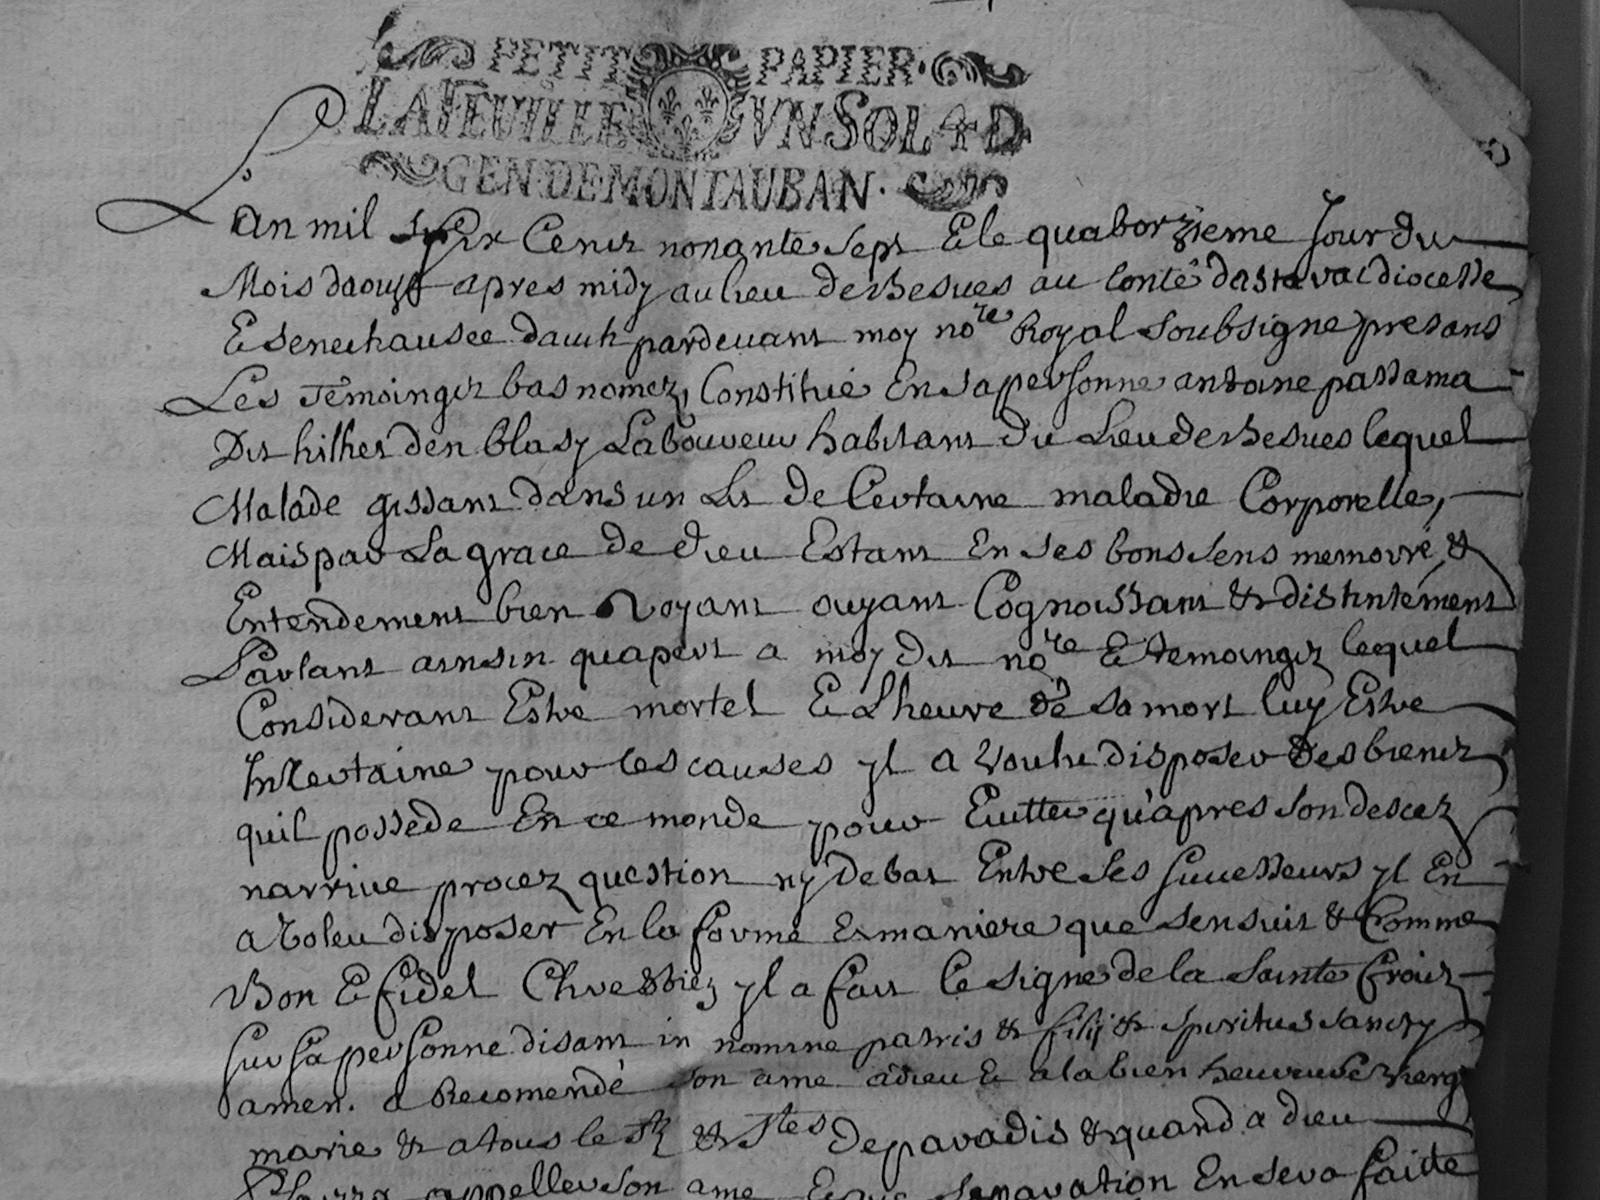 PETIT PAPIER.
LA FEUILLE UN SOL 4 D
GEN DE MONTAUBAN.
Lan mil six Cens nonante sept E le quatorzieme Jour du
Mois daoust apres midy au lieu de Besues au Conté dastarac diocesse
E senechausee dauch pardevant moy nore Royal soubsigne presans
Les Temoingz bas nomez, Constitué En sa personne antoine passama
Dit hilhet den blasy Laboureur habitant du Lieu de Besues lequel
Malade gissant dans un Lit de Certaine maladie Corporelle,
Mais par La grace de dieu Estant En ses bons sens memoire, &
Entendement bien Voyant ouyant Cognoissant & distintement
Parlant ainsin quapert a moy dit nore E temoingz lequel
Considerant Estre mortel E Lheure de sa mort luy Estre
Incertaine pour ces causes yl a Voulu disposer des biens
quil possede En ce monde pour Evitter qu'apres son descez
narrive procez question ny debat Entre ses successeurs yl En
a Voleu disposer En la forme Et maniere que sensuit & Comme
Bon E fidel Chrestien yl a fait le signe de la sainte Croix
sur sa personne disant in nomine patris & filij & spiritus sancty
amen. a Recomendé son ame a dieu E a la bien heureuse Vierge
marie & a tous le sts & stes de paradis & quand a dieu
Plairra appeller son ame separation En sera faitte